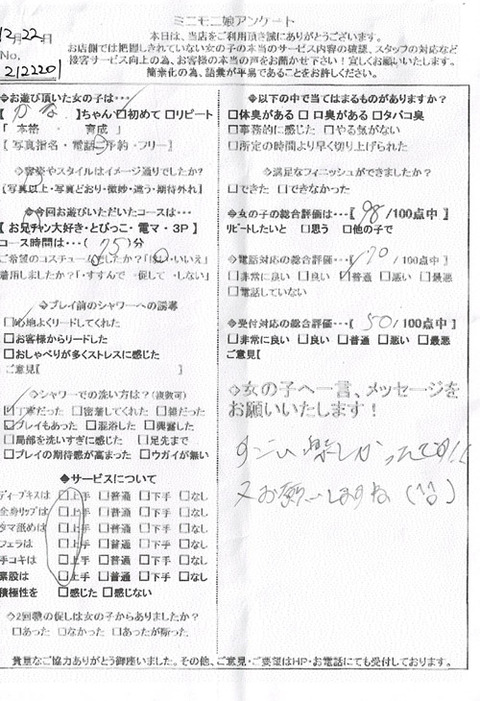 ミニモニ娘アンケート
12月22日
No.
212220
本日は、当店をご利用頂き誠にありがとうございます。
お店側では把握しきれていない女の子の本当のサービス内容の確認、スタッフの対応など
接客サービス向上の為、お客様の本当の声をお聞かせ下さい！宜しくお願いいたします。
簡素化の為、語彙が平易であることをお許しください。
◆お遊び頂いた女の子は…
【かな】ちゃん 初めて □リピート
「本格・育成」
【写真指名・電話ご予約・フリー】
◇容姿やスタイルはイメージ通りでしたか？
【写真以上・写真どおり・微妙・違う・期待外れ】
◆今回お遊びいただいたコースは…
【お兄チャン大好き・とびっこ・電マ・3P】
コース時間は…（75）分
ご希望のコスチュームでしたか？「はい・いいえ」
着用しましたか？「すすんで・促して・しない」
◇プレイ前のシャワーへの誘導
□心地よくリードしてくれた
□お客様からリードした
□おしゃべりが多くストレスに感じた
ご意見【 】
◇シャワーでの洗い方は？（複数可）
□丁寧だった □密着してくれた □雑だった
□プレイもあった □混浴した □興奮した
□局部を洗いすぎに感じた □足先まで
□プレイの期待感が高まった □ウガイが無い
◆サービスについて
ディープキスは □上手 □普通 □下手 □なし
全身リップは □上手 □普通 □下手 □なし
タマ舐めは □上手 □普通 □下手 □なし
フェラは □上手 □普通 □下手 □なし
手コキは □上手 □普通 □下手 □なし
素股は □上手 □普通 □下手 □なし
積極性を □感じた □感じない
◇2回戦の促しは女の子からありましたか？
□あった □なかった □あったが断った
◆以下の中で当てはまるものがありますか？
□体臭がある □口臭がある □タバコ臭
□事務的に感じた □やる気がない
□所定の時間より早く切り上げられた
◇満足なフィニッシュができましたか？
□できた □できなかった
◆女の子の総合評価は…【98/100点中】
リピートしたいと □思う □他の子で
◇電話対応の総合評価…【70/100点中】
□非常に良い □良い □普通 □悪い □最悪
□電話していない
◆受付対応の総合評価…【50/100点中】
□非常に良い □良い □普通 □悪い □最悪
ご意見【
◇女の子へ一言、メッセージを
お願いいたします！
すごい楽しかったです!!
又お願いしますね
貴重なご協力ありがとう御座いました。その他、ご意見・ご要望はHP・お電話にても受付しております。